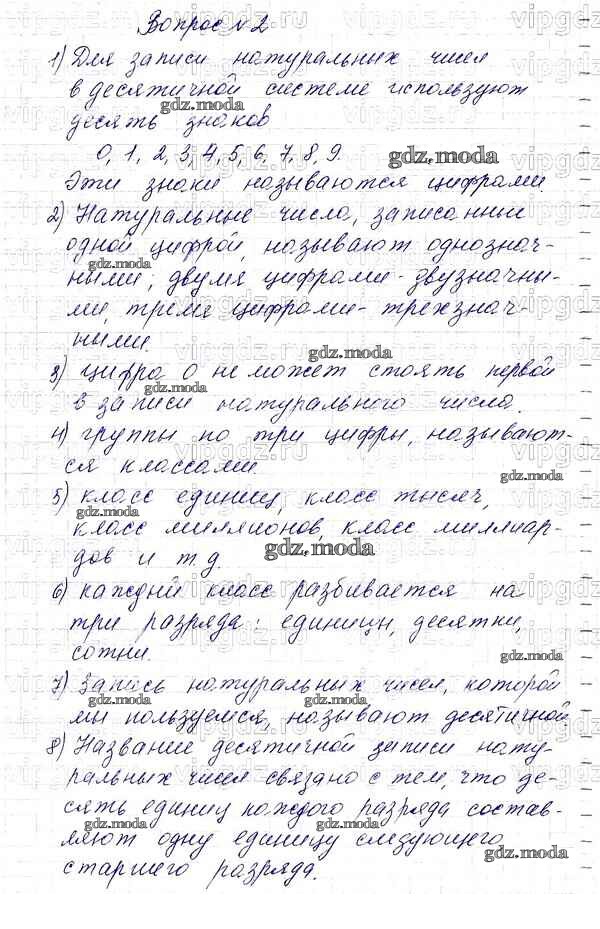 Вопрос №2
1) Для записи натуральных чисел
в десятичной системе используют
десять знаков
0, 1, 2, 3, 4, 5, 6, 7, 8, 9.
Эти знаки называются цифрами
2) Натуральные числа, записанные
одной цифрой, называют однознач-
ными; двумя цифрами - двузначны-
ми, тремя цифрами - трехзнач-
ными.
3) цифра 0 не может стоять первой
в записи натурального числа.
4) группы по три цифры, называют-
ся классами.
5) класс единиц, класс тысяч,
класс миллионов, класс миллиар-
дов и т.д.
6) каждый класс разбивается на
три разряда: единицы, десятки,
сотни.
7) Запись натуральных чисел, которой
мы пользуемся, называют десятичной
8) Название десятичной записи нату-
ральных чисел связано с тем, что де-
сять единиц каждого разряда состав-
ляют одну единицу следующего
старшего разряда.
gdz.moda
vipgdz.ru